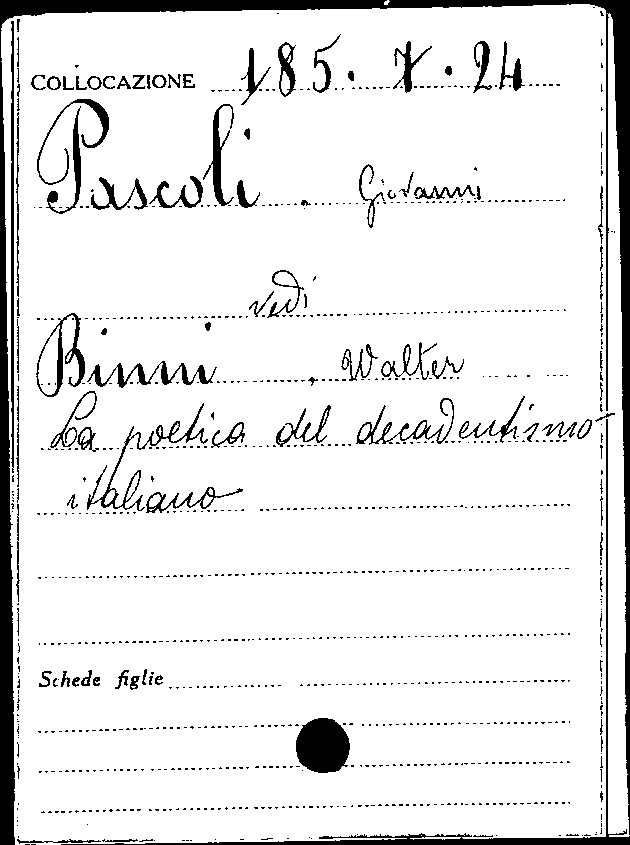 COLLOCAZIONE 185. 7. 24
Pascoli, Giovanni
vedi
Binni, Walter
La poetica del decadentismo
italiano
Schede figlie